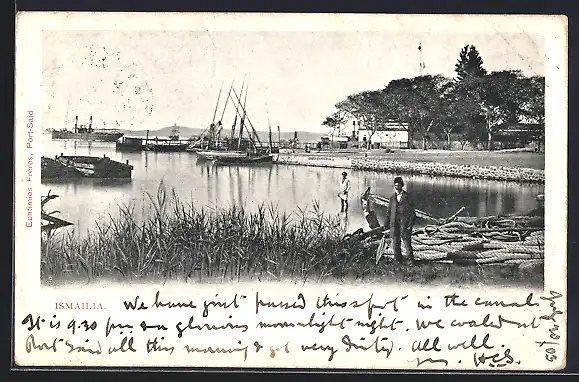 Echtimios Frères, Port-Said
ISMAILIA.
We have just passed this spot in the canal
It is 9.30 pm & a glorious moonlight night. We coaled at
Port Said all this morning & got very dirty. All well.
yrs. HCS.